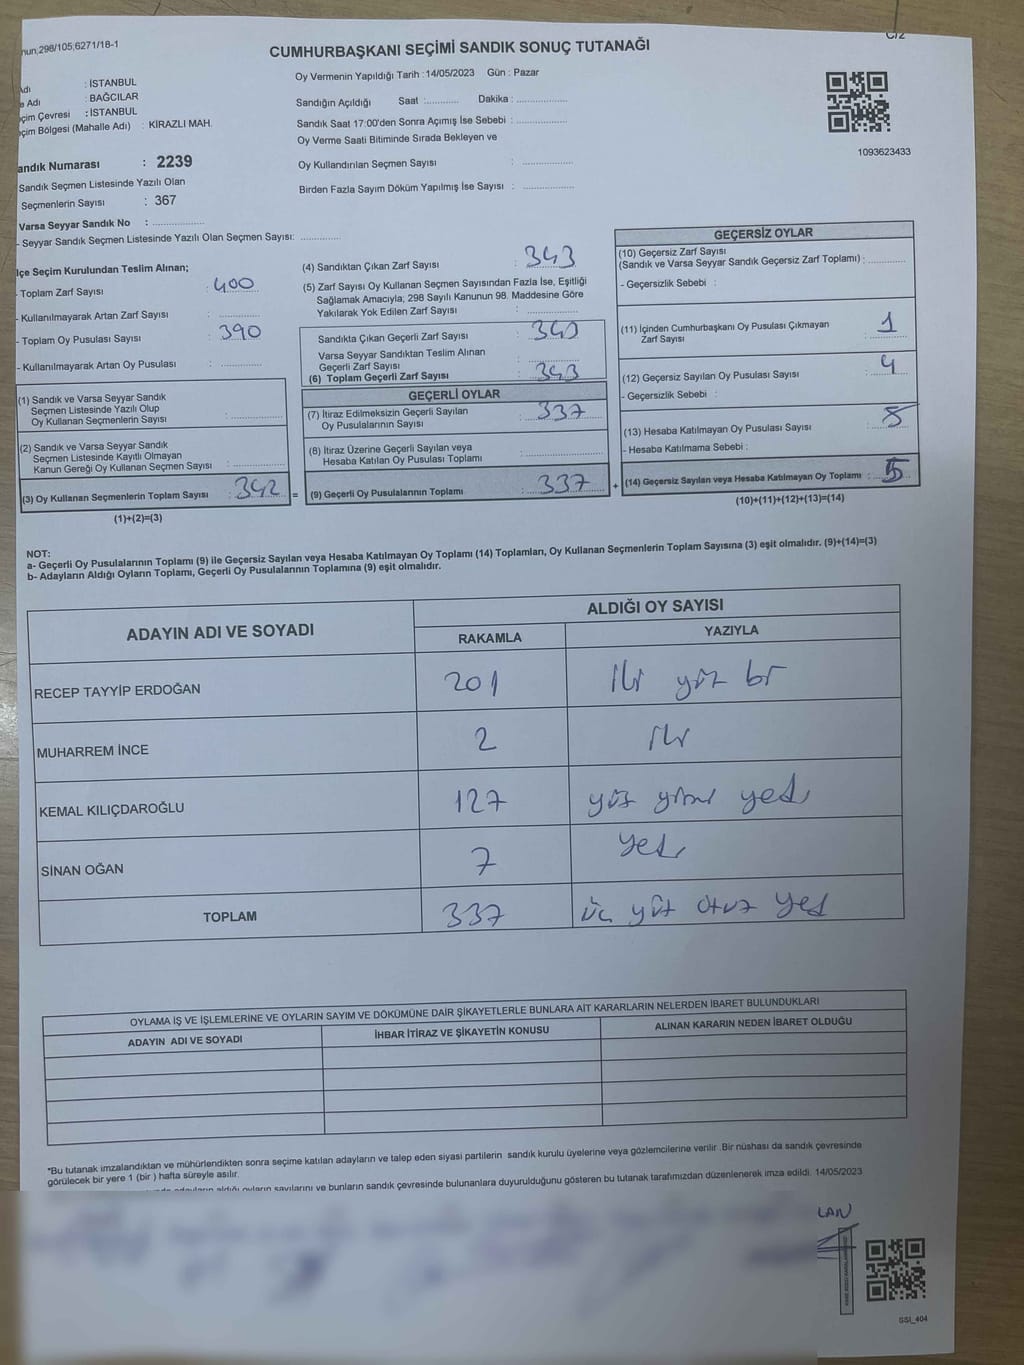 nun,298/105,6271/18-1
C/2
CUMHURBAŞKANI SEÇİMİ SANDIK SONUÇ TUTANAĞI
Adı : İSTANBUL
e Adı : BAĞCILAR
çim Çevresi : İSTANBUL
çim Bölgesi (Mahalle Adı) : KİRAZLI MAH.
andık Numarası : 2239
Sandık Seçmen Listesinde Yazılı Olan
Seçmenlerin Sayısı : 367
Varsa Seyyar Sandık No : ..................
- Seyyar Sandık Seçmen Listesinde Yazılı Olan Seçmen Sayısı: .............
Oy Vermenin Yapıldığı Tarih :14/05/2023 Gün : Pazar
Sandığın Açıldığı Saat :........... Dakika : .................
Sandık Saat 17:00'den Sonra Açımış İse Sebebi : .................
Oy Verme Saati Bitiminde Sırada Bekleyen ve
Oy Kullandırılan Seçmen Sayısı : .................
Birden Fazla Sayım Döküm Yapılmış İse Sayısı : .................
1093623433
lçe Seçim Kurulundan Teslim Alınan;
- Toplam Zarf Sayısı : 400
- Kullanılmayarak Artan Zarf Sayısı : .............
- Toplam Oy Pusulası Sayısı : 390
- Kullanılmayarak Artan Oy Pusulası : .............
(1) Sandık ve Varsa Seyyar Sandık
Seçmen Listesinde Yazılı Olup
Oy Kullanan Seçmenlerin Sayısı : .............
(2) Sandık ve Varsa Seyyar Sandık
Seçmen Listesinde Kayıtlı Olmayan
Kanun Gereği Oy Kullanan Seçmen Sayısı : .............
(3) Oy Kullanan Seçmenlerin Toplam Sayısı : 342 =
(1)+(2)=(3)
(4) Sandıktan Çıkan Zarf Sayısı : 343
(5) Zarf Sayısı Oy Kullanan Seçmen Sayısından Fazla İse, Eşitliği
Sağlamak Amacıyla; 298 Sayılı Kanunun 98. Maddesine Göre
Yakılarak Yok Edilen Zarf Sayısı : .............
Sandıkta Çıkan Geçerli Zarf Sayısı :
Varsa Seyyar Sandıktan Teslim Alınan
Geçerli Zarf Sayısı : .............
(6) Toplam Geçerli Zarf Sayısı : 343
GEÇERLİ OYLAR
(7) İtiraz Edilmeksizin Geçerli Sayılan
Oy Pusulalarının Sayısı : 337
(8) İtiraz Üzerine Geçerli Sayılan veya
Hesaba Katılan Oy Pusulası Toplamı : .............
(9) Geçerli Oy Pusulalarının Toplamı : 337 +
GEÇERSİZ OYLAR
(10) Geçersiz Zarf Sayısı
(Sandık ve Varsa Seyyar Sandık Geçersiz Zarf Toplamı) : .............
- Geçersizlik Sebebi :
(11) İçinden Cumhurbaşkanı Oy Pusulası Çıkmayan
Zarf Sayısı : 1
(12) Geçersiz Sayılan Oy Pusulası Sayısı : 4
- Geçersizlik Sebebi :
(13) Hesaba Katılmayan Oy Pusulası Sayısı :
- Hesaba Katılmama Sebebi :
(14) Geçersiz Sayılan veya Hesaba Katılmayan Oy Toplamı : 5
(10)+(11)+(12)+(13)=(14)
NOT:
a- Geçerli Oy Pusulalarının Toplamı (9) ile Geçersiz Sayılan veya Hesaba Katılmayan Oy Toplamı (14) Toplamları, Oy Kullanan Seçmenlerin Toplam Sayısına (3) eşit olmalıdır. (9)+(14)=(3)
b- Adayların Aldığı Oyların Toplamı, Geçerli Oy Pusulalarının Toplamına (9) eşit olmalıdır.
ADAYIN ADI VE SOYADI ALDIĞI OY SAYISI
RAKAMLA YAZIYLA
RECEP TAYYİP ERDOĞAN 201 İki yüz bir
MUHARREM İNCE 2 iki
KEMAL KILIÇDAROĞLU 127 yüz yirmi yedi
SİNAN OĞAN 7 yedi
TOPLAM 337 üç yüz otuz yedi
OYLAMA İŞ VE İŞLEMLERİNE VE OYLARIN SAYIM VE DÖKÜMÜNE DAİR ŞİKAYETLERLE BUNLARA AİT KARARLARIN NELERDEN İBARET BULUNDUKLARI
ADAYIN ADI VE SOYADI İHBAR İTİRAZ VE ŞİKAYETİN KONUSU ALINAN KARARIN NEDEN İBARET OLDUĞU
*Bu tutanak imzalandıktan ve mühürlendikten sonra seçime katılan adayların ve talep eden siyasi partilerin sandık kurulu üyelerine veya gözlemcilerine verilir. Bir nüshası da sandık çevresinde
görülecek bir yere 1 (bir ) hafta süreyle asılır.
adayların aldığı oyların sayılarını ve bunların sandık çevresinde bulunanlara duyurulduğunu gösteren bu tutanak tarafımızdan düzenlenerek imza edildi. 14/05/2023
LAN
SSİ_404